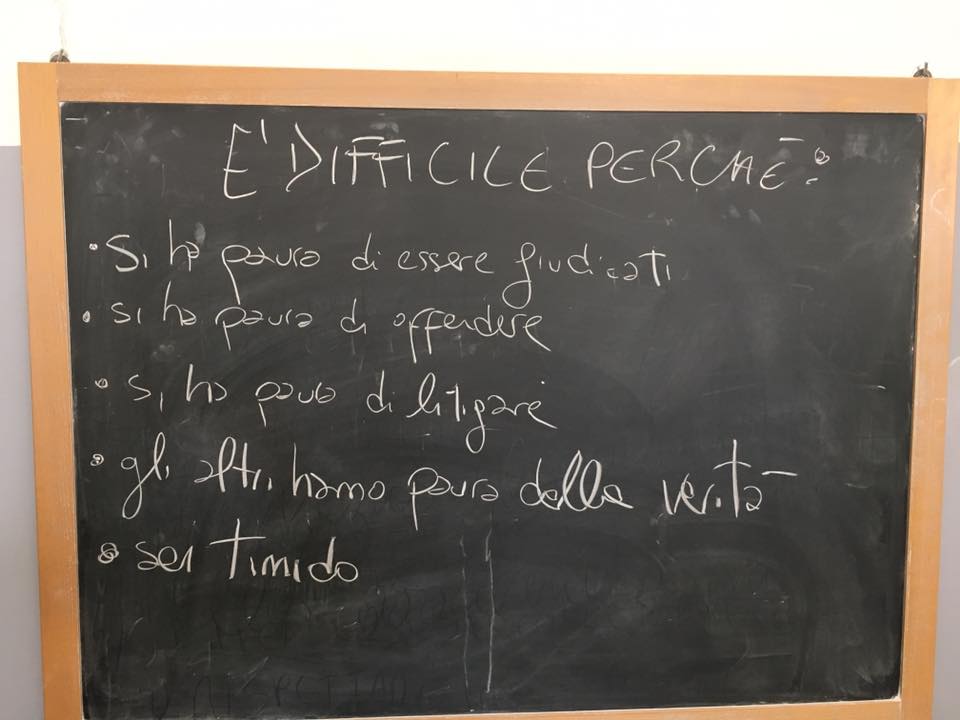 E' DIFFICILE PERCHÉ:
• Si ha paura di essere giudicati
• si ha paura di offendere
• si ha paura di litigare
• gli altri hanno paura della verità
• sei timido